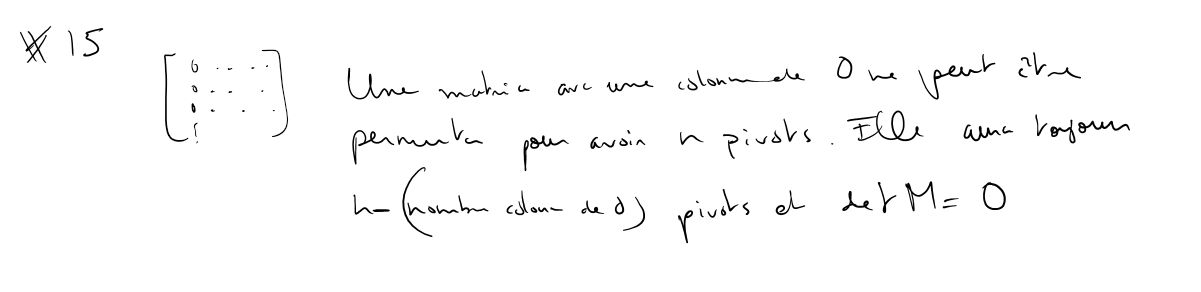 15
[0 . . . .
0 . . .
0 . . .
⋮]
Une matrice avec une colonne de 0 ne peut être
permuter pour avoir n pivots. Elle aura toujours
n-(nombre colonne de 0) pivots et det M = 0